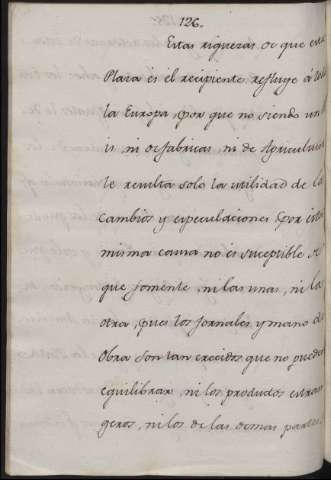 126.
Estas riquezas de que esta
Plaza és el recipiente refluye á toda
la Europa, por que no siendo un
is ni de fabricas, ni de Agricultura
le resulta solo la utilidad de los
Cambios y especulaciones por esta
misma causa no és suceptible de
que fomente, ni las unas, ni la
otra, pues los Jornales, y mano de
Obra son tan crecidos que no puede
equilibrar, ni los productos estran
geros, ni los de las demas partes